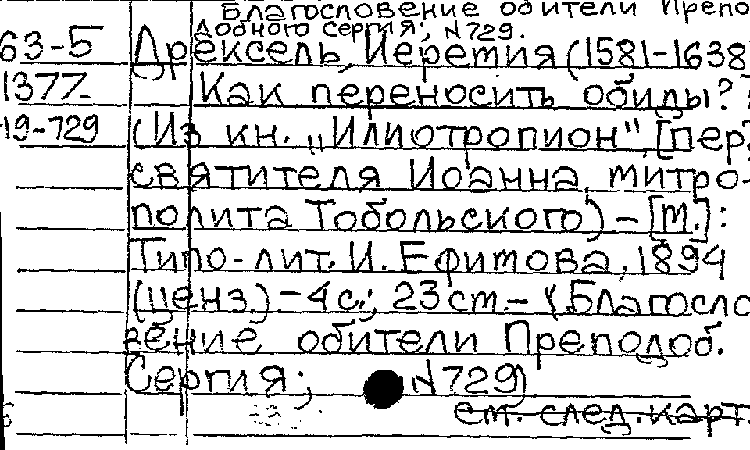 Благословение обители Препо-
добного Сергия; N729.
63-5 Дрексель, Иеремия (1581-1638)
1377- Как переносить обиды?
19-729 (Из кн. „Илиотропион", [пер.
святителя Иоанна, митро-
полита Тобольского) – [М.]:
Типо-лит. И. Ефимова, 1894
(ценз.) – 4 с.; 23 см. – (Благосло-
вение обители Преподоб.
Сергия; N729)
см. след. карт.